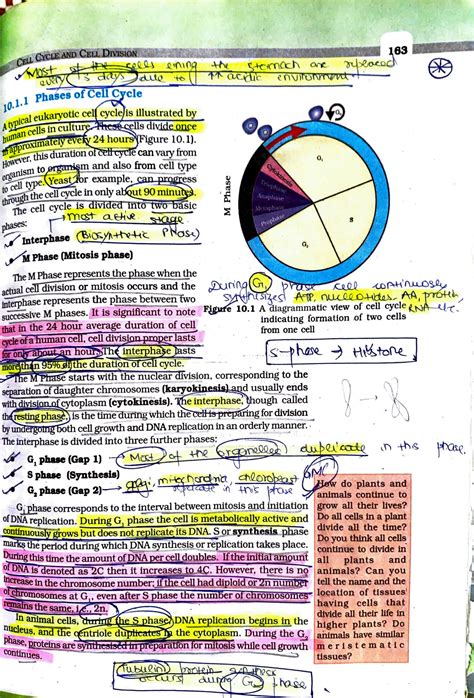 CELL CYCLE AND CELL DIVISION
163
Most of the cells lining the stomach are replaced
every (3 days) due to ↑↑ acidic environment
10.1.1 Phases of Cell Cycle
A typical eukaryotic cell cycle is illustrated by
human cells in culture. These cells divide once
in approximately every 24 hours (Figure 10.1).
However, this duration of cell cycle can vary from
organism to organism and also from cell type
to cell type. Yeast for example, can progress
through the cell cycle in only about 90 minutes.
The cell cycle is divided into two basic
phases:
most active stage
Interphase (Biosynthetic Phase)
M Phase (Mitosis phase)
The M Phase represents the phase when the
actual cell division or mitosis occurs and the
interphase represents the phase between two
successive M phases. It is significant to note
that in the 24 hour average duration of cell
cycle of a human cell, cell division proper lasts
for only about an hour. The interphase lasts
more than 95% of the duration of cell cycle.
M Phase
Cytokinesis
Telophase
Anaphase
Metaphase
Prophase
G1
S
G2
G0
During G1 phase cell continuously
synthesized ATP, nucleotides, AA, protein
RNA etc.
Figure 10.1 A diagrammatic view of cell cycle
indicating formation of two cells
from one cell
S-phase → Histone
The M Phase starts with the nuclear division, corresponding to the
separation of daughter chromosomes (karyokinesis) and usually ends
with division of cytoplasm (cytokinesis). The interphase, though called
the resting phase, is the time during which the cell is preparing for division
by undergoing both cell growth and DNA replication in an orderly manner.
The interphase is divided into three further phases:
G1 phase (Gap 1) → Most of the organelles duplicate in this phase
S phase (Synthesis)
G2 phase (Gap 2) → golgi, mitochondria, chloroplast
replicate in this phase
G1 phase corresponds to the interval between mitosis and initiation
of DNA replication. During G1 phase the cell is metabolically active and
continuously grows but does not replicate its DNA. S or synthesis phase
marks the period during which DNA synthesis or replication takes place.
During this time the amount of DNA per cell doubles. If the initial amount
of DNA is denoted as 2C then it increases to 4C. However, there is no
increase in the chromosome number; if the cell had diploid or 2n number
of chromosomes at G1, even after S phase the number of chromosomes
remains the same, i.e., 2n.
In animal cells, during the S phase, DNA replication begins in the
nucleus, and the centriole duplicates in the cytoplasm. During the G2
phase, proteins are synthesised in preparation for mitosis while cell growth
continues.
How do plants and
animals continue to
grow all their lives?
Do all cells in a plant
divide all the time?
Do you think all cells
continue to divide in
all plants and
animals? Can you
tell the name and the
location of tissues
having cells that
divide all their life in
higher plants? Do
animals have similar
meristematic
tissues?
Tubulin protein synthesis
occurs during G2 phase